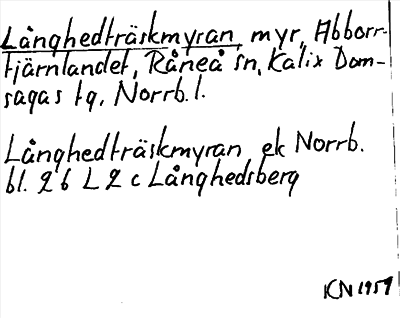 Långhedträskmyran, myr, Abborr-
tjärnlandet, Råneå sn, Kalix Dom-
sagas tg, Norrb. l.
Långhedträskmyran ek Norrb.
bl. 26 L 2 c Långhedsberg
KN 1959